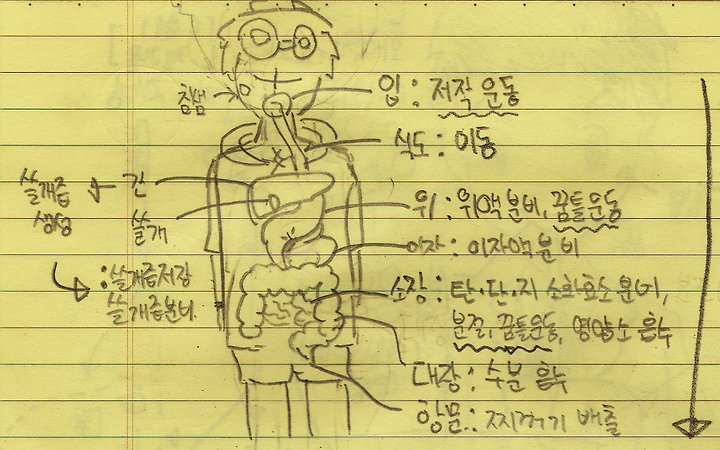 입 : 저작 운동
침샘
식도 : 이동
쓸개즙 ← 간
생성
쓸개
: 쓸개즙저장
쓸개즙분비
위 : 위액 분비, 꿈틀운동
이자 : 이자액 분비
소장 : 탄·단·지 소화효소 분비,
분절, 꿈틀운동, 영양소 흡수
대장 : 수분 흡수
항문 : 찌꺼기 배출